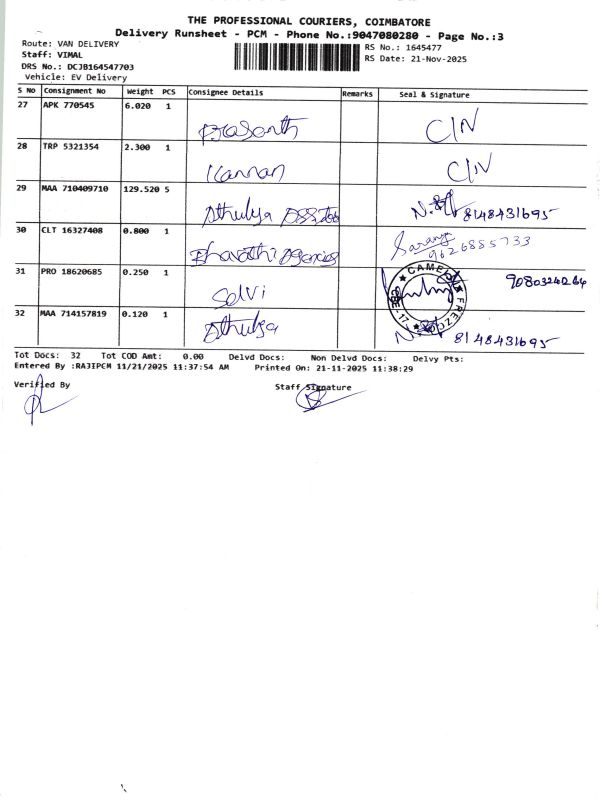 THE PROFESSIONAL COURIERS, COIMBATORE
Delivery Runsheet - PCM - Phone No.:9047080280 - Page No.:3
Route: VAN DELIVERY
RS No.: 1645477
Staff: VIMAL
RS Date: 21-Nov-2025
DRS No.: DCJB164547703
Vehicle: EV Delivery
S No Consignment No Weight PCS Consignee Details Remarks Seal & Signature
27 APK 770545 6.020 1 Prasanth C/N
28 TRP 5321354 2.300 1 Kannan C/N
29 MAA 710409710 129.520 5 Athulya 8148431695
30 CLT 16327408 0.800 1 Bharathi Agencies Saranya 9626885733
31 PRO 18620685 0.250 1 Selvi
32 MAA 714157819 0.120 1 Athulya 8148431695
Tot Docs: 32 Tot COD Amt: 0.00 Delvd Docs: Non Delvd Docs: Delvy Pts:
Entered By :RAJIPCM 11/21/2025 11:37:54 AM Printed On: 21-11-2025 11:38:29
Verified By
Staff Signature